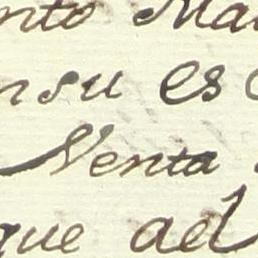 nto Ma
nsu es
Venta
que ad